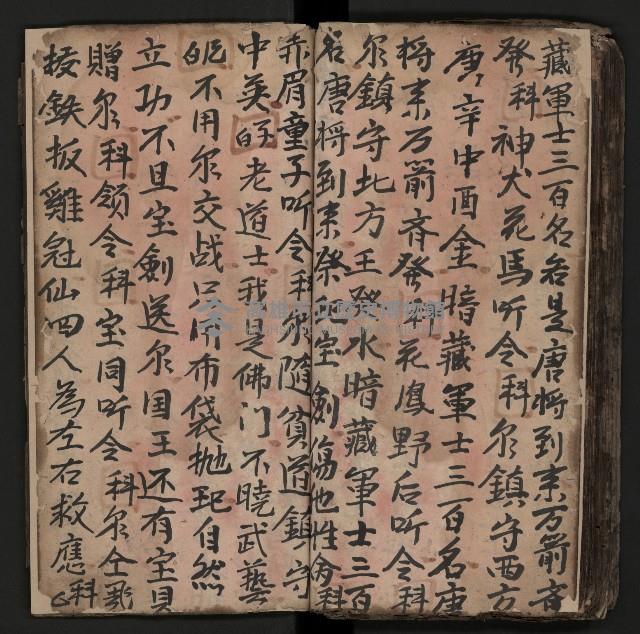 藏軍士三百名若是唐將到來万箭斉
發科神犬花馬听令科尔鎮守西方
庚辛申酉金暗藏軍士三百名唐
将来万箭斉發科花鳳野后听令科
尔鎮守北方壬癸水暗藏軍士三百
名唐将到来祭宝劍傷他性命科
赤眉童子听令科尔随貧道鎮守
中英白老道士我是佛门不曉武藝
白不用尔交战只用布袋抛起自然
立功不且宝劍送尔国王还有宝貝
贈尔科领令科宝同听令科尔仝
鉄扳雞冠仙四人為左右救應科
高雄市立歷史博物館